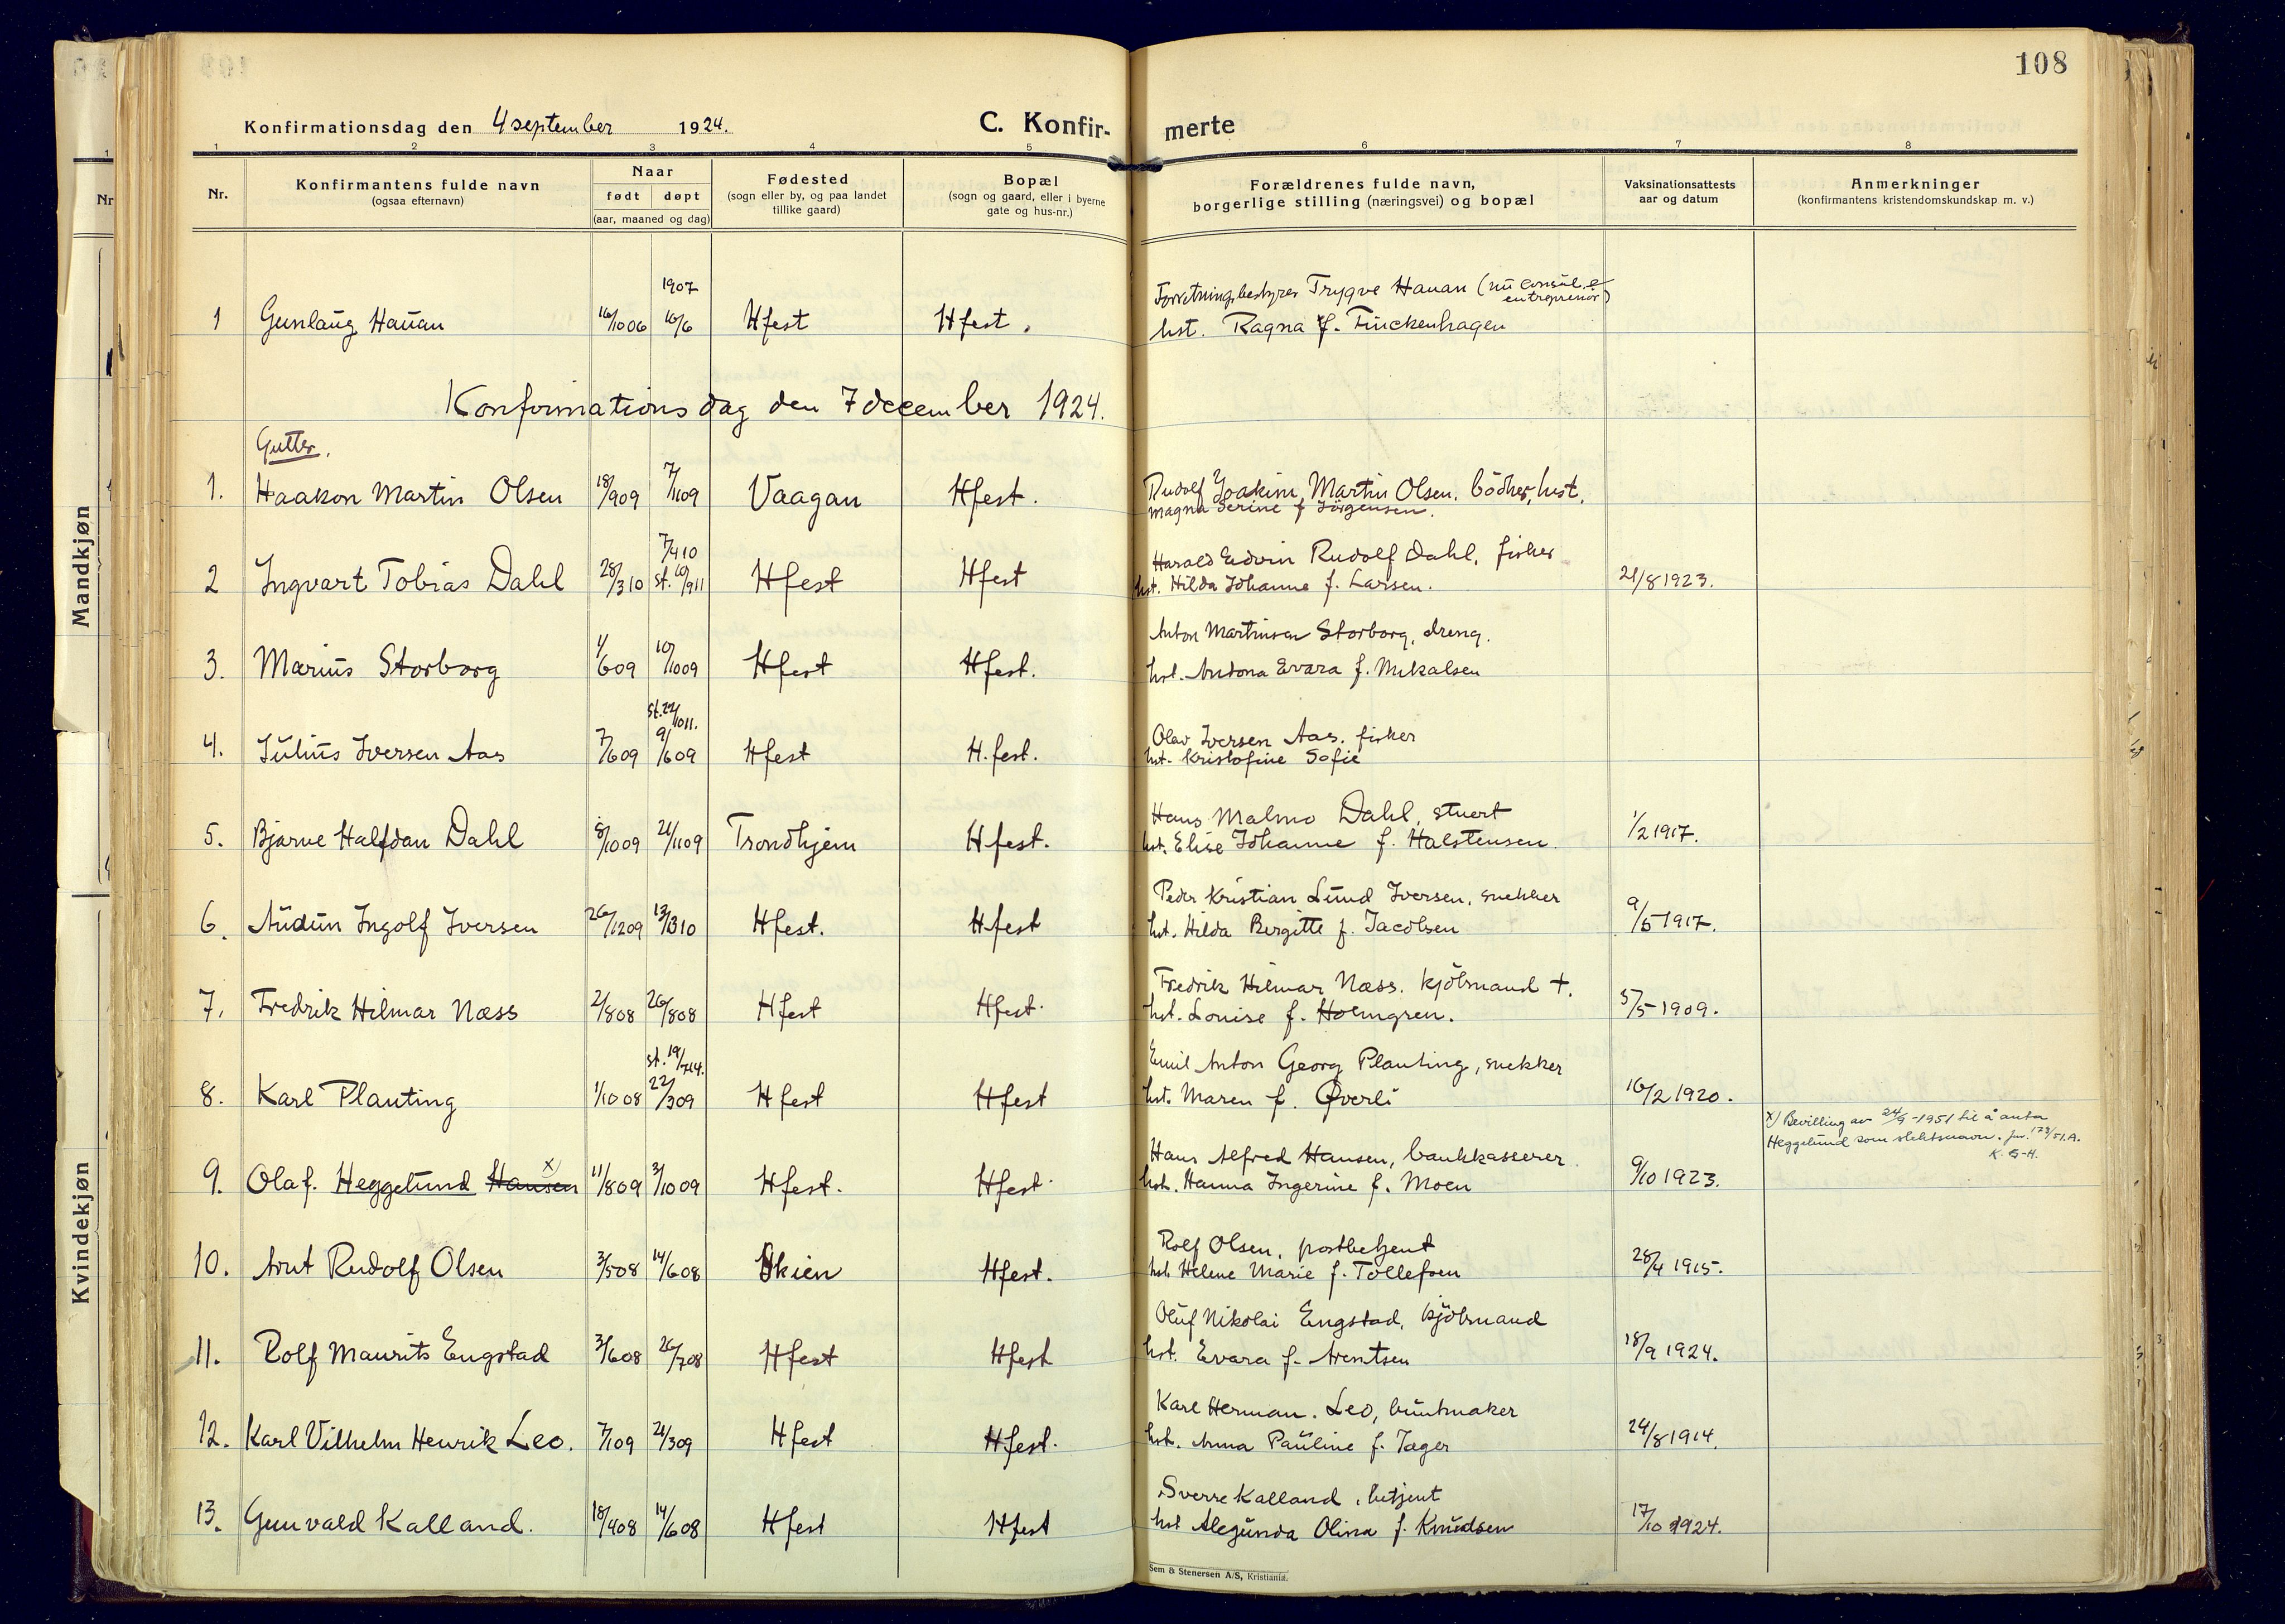 108
Konfirmationsdag den 4 september 1924.
C. Konfir-
merte
1 2 3 4 5 6 7 8
Nr. Konfirmantens fulde navn (ogsaa efternavn) Naar født døpt (aar, maaned og dag) Fødested (sogn eller by, og paa landet tillike gaard) Bopæl (sogn og gaard, eller i byerne gate og hus-nr.) Forældrenes fulde navn, borgerlige stilling (næringsvei) og bopæl Vaksinationsattests aar og datum Anmerkninger (konfirmantens kristendomskundskap m. v.)
1907
Forretningsbestyrer Trygve Hauan (nu consul, e
entreprenör)
1 Gunlaug Hauan 16/10 06 16/6 Hfest Hfest. hst. Ragna f. Finckenhagen
Konfirmations dag den 7 december 1924.
Gutter.
1. Haakon Martin Olsen 18/9 09 7/11 09 Vaagan Hfest. Rudolf Joakim Martin Olsen. bödker, hst.
Magna Serine f Jörgensen.
7/4 10 Harald Edvin Rudolf Dahl, fisker
2 Ingvart Tobias Dahl 28/3 10 st. 10/9 11 Hfest Hfest hst. Hilda Johanne f. Larsen. 21/8 1923.
Anton Martinsen Storborg, dreng.
3. Marius Storborg 1/6 09 10/10 09 Hfest Hfest. hst. Andona Evara f. Mikalsen
st. 22/10 11.
Olav Iversen Aas. fisker
4. Julius Iversen Aas 7/6 09 9/6 09 Hfest H.fest. hst. Kristofine Sofie
Hans Malmo Dahl, stuert
5. Bjarne Halfdan Dahl 8/10 09 21/11 09 Trondhjem Hfest. hst. Elise Johanne f. Halstensen. 1/2 1917.
Peder Kristian Lund Iversen, snekker
6. Audun Ingolf Iversen 26/12 09 13/3 10 Hfest. Hfest hst. Hilda Bergitte f. Jacobsen 9/5 1917.
Fredrik Hilmar Næss. kjöbmand +.
7. Fredrik Hilmar Næss 2/8 08 26/8 08 Hfest Hfest. hst. Louise f. Holmgren. 5/5-1909.
st. 19/7 14. Emil Anton Georg Planting, snekker
8. Karl Planting 1/10 08 22/3 09 Hfest Hfest hst. Maren f. Øverli 16/2 1920.
x) Bevilling av 24/9-1951 til å anta
Heggelund som slektsnavn. jnr. 173/51.A.
K. G-H.
Hans Alfred Hansen, bankkasserer
9. Olaf. Heggelund Hansen x) 11/8 09 3/10 09 Hfest. Hfest. hst. Hanna Ingerine f. Moen 9/10 1923.
Rolf Olsen, postbetjent
10. Arnt Rudolf Olsen 3/5 08 14/6 08 Skien Hfest. hst. Helene Marie f. Tollefsen 28/4 1915.
Oluf Nikolai Engstad, kjöbmand
11. Rolf Maurits Engstad 3/6 08 26/7 08 Hfest Hfest hst. Evara f. Arentsen 18/9 1924.
Karl Herman. Leo, buntmaker
12. Karl Vilhelm Henrik Leo. 7/1 09 21/3 09 Hfest Hfest. hst. Anna Pauline f. Jæger 24/8 1914.
Sverre Kalland, betjent
13. Gunvald Kalland. 18/4 08 14/6 08 Hfest Hfest hst Alegunda Olina f. Knudsen 17/10 1924.
Sem & Stenersen A/S, Kristiania.
1
Nr
Mandkjøn
Kvindekjøn